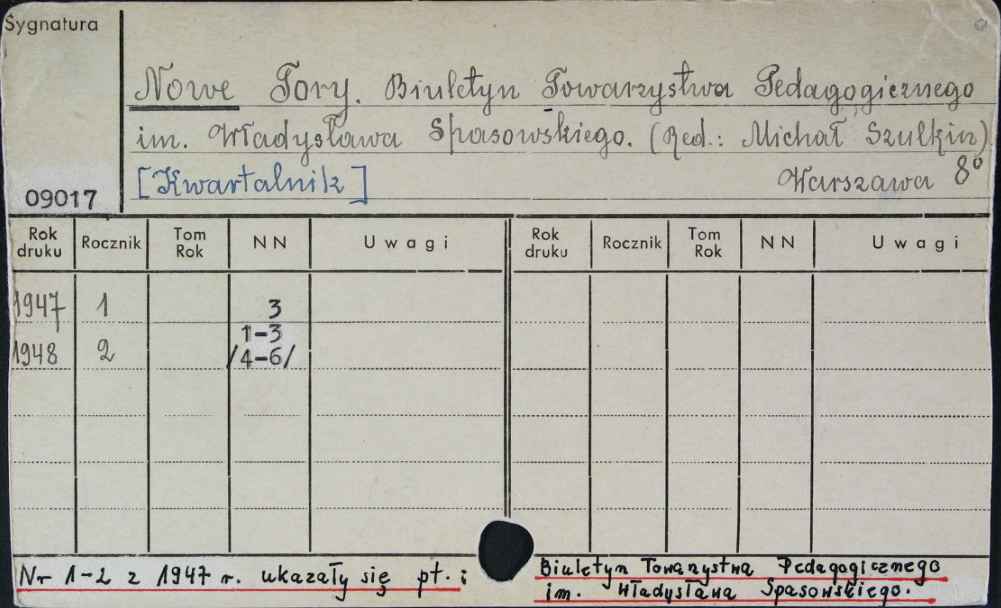 Sygnatura
Nowe Tory. Biuletyn Towarzystwa Pedagogicznego
im. Władysława Spasowskiego. (Red.: Michał Szulkin)
[Kwartalnik] Warszawa 8°
09017
Rok druku Rocznik Tom Rok NN Uwagi Rok druku Rocznik Tom Rok NN Uwagi
1947 1 3
1-3
1948 2 /4-6/
Nr 1-2 z 1947 r. ukazały się pt.: Biuletyn Towarzystwa Pedagogicznego
im. Władysława Spasowskiego.